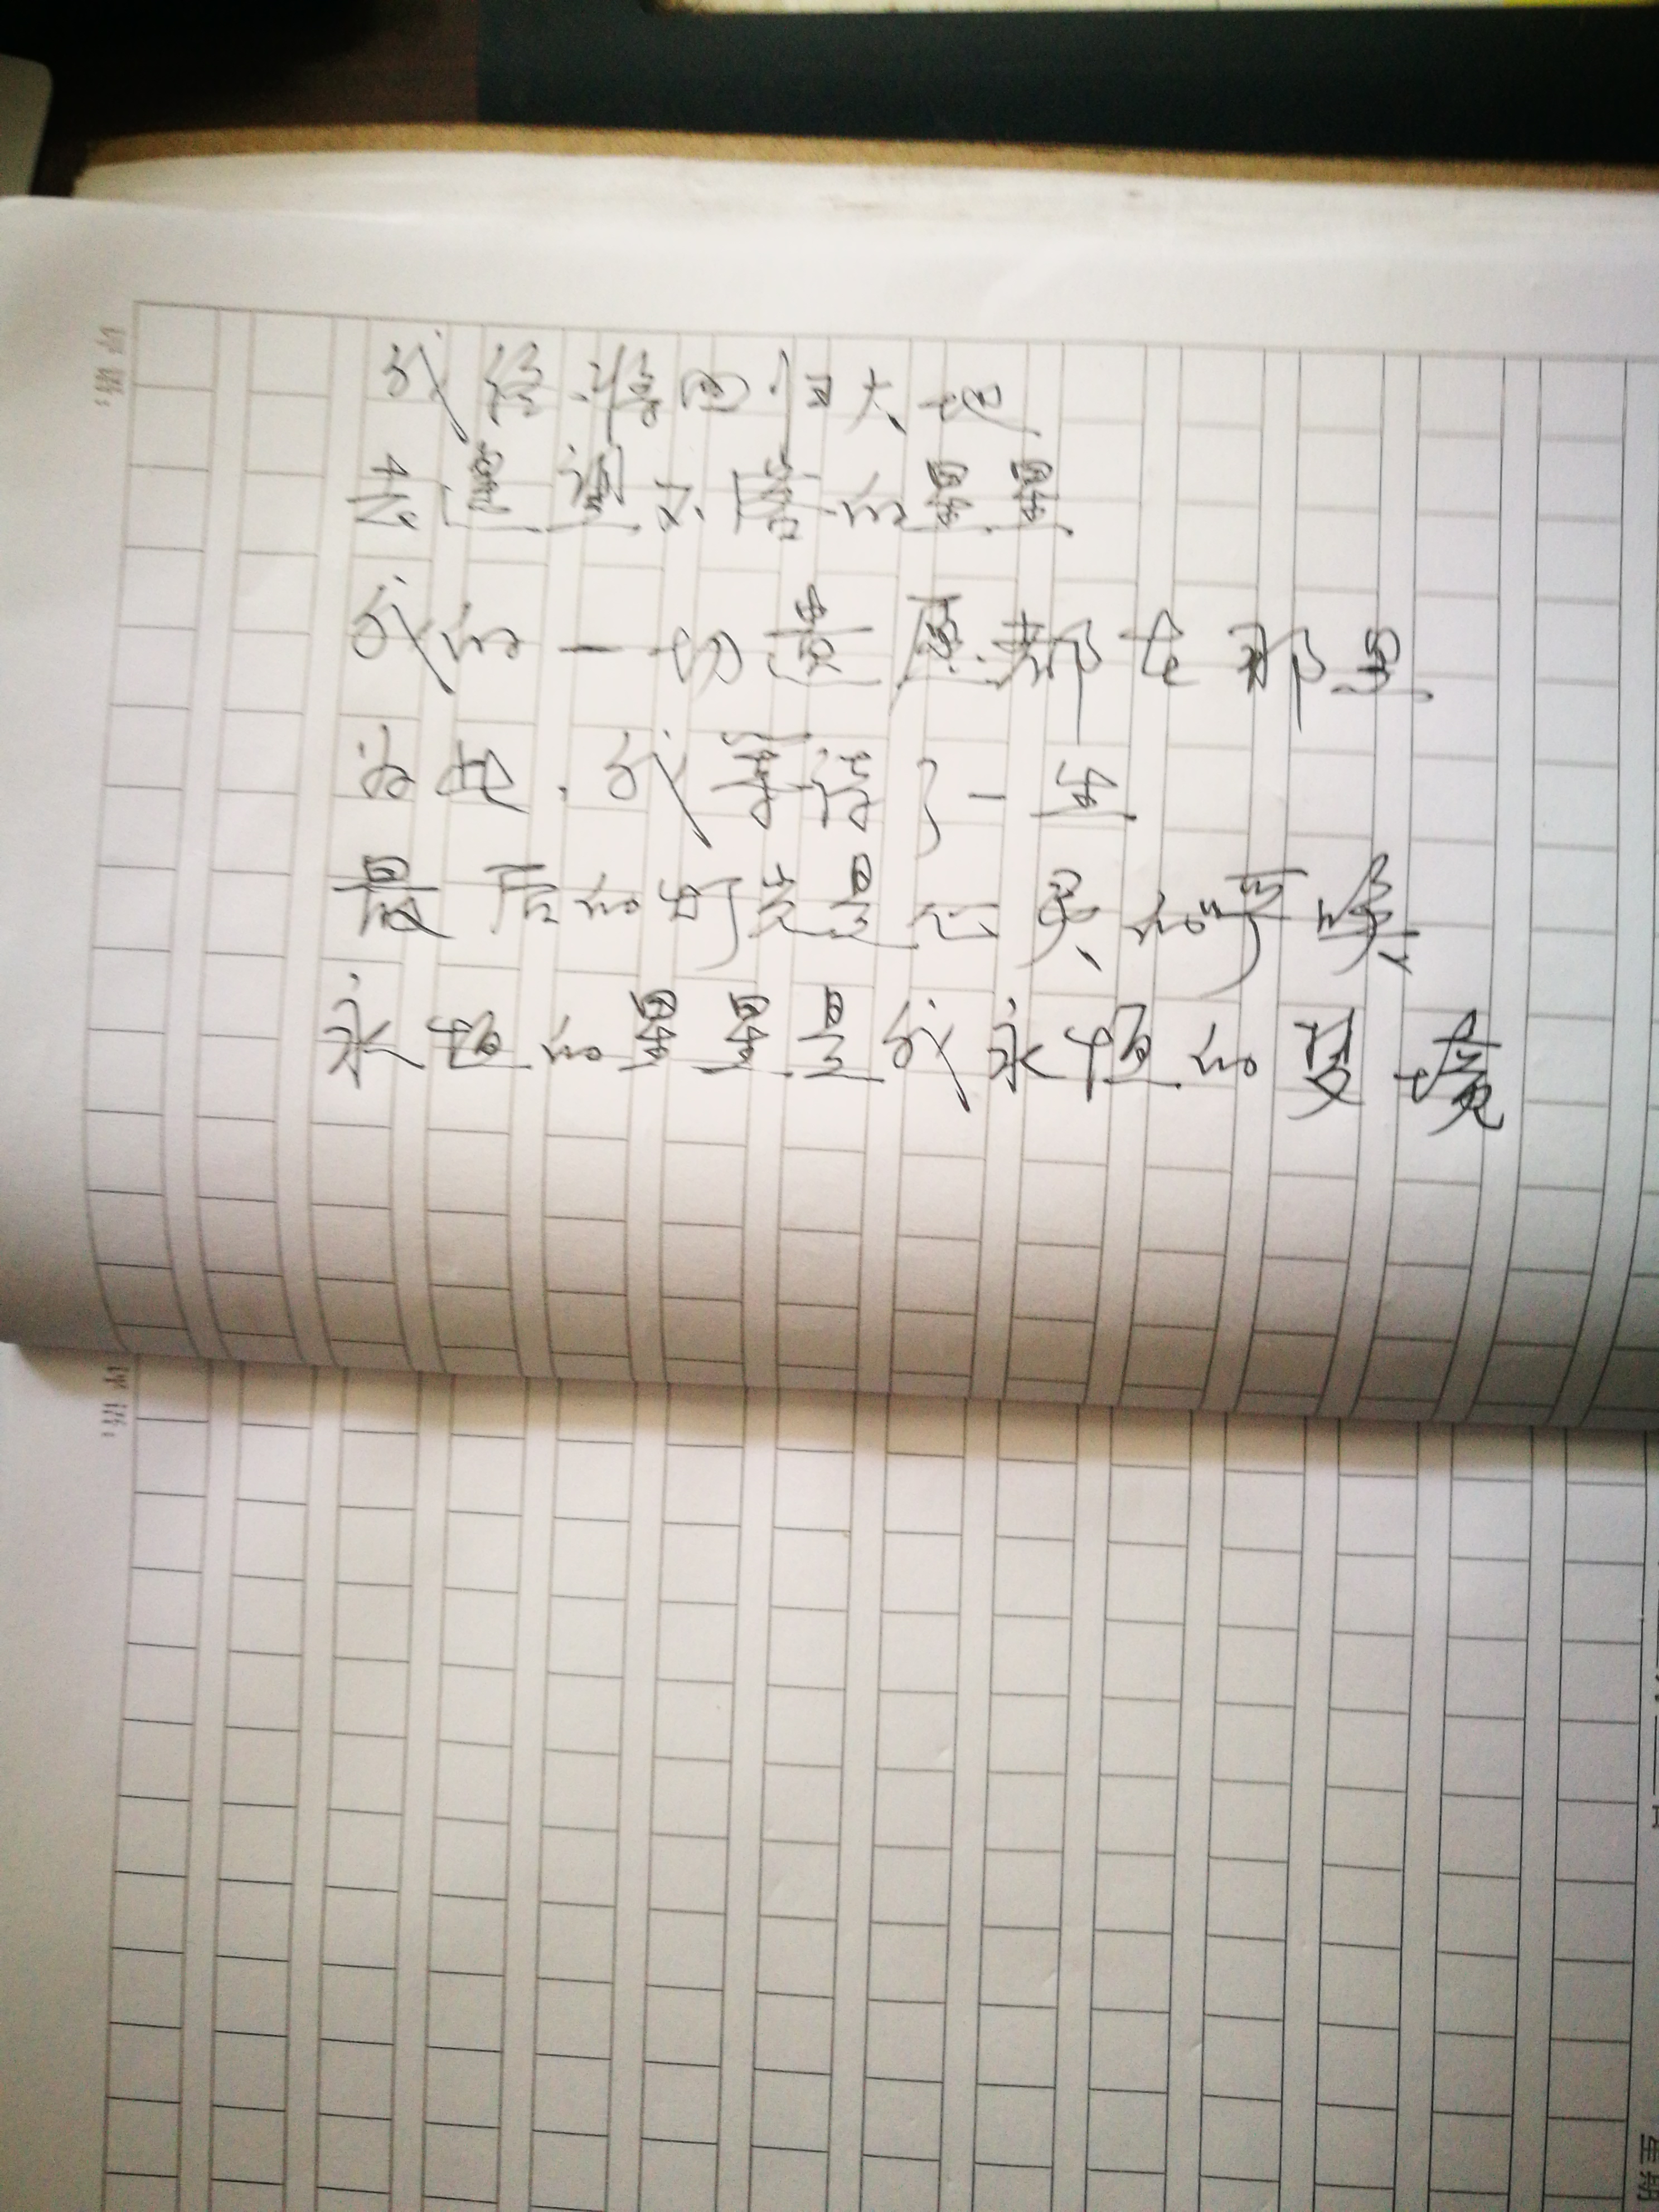 我终将回归大地
去遥望不属的星星
我的一切遗愿都在那里
为此,我等待了一生
最后的灯光是心灵的严峰
永恒的星星是我永恒的梦境